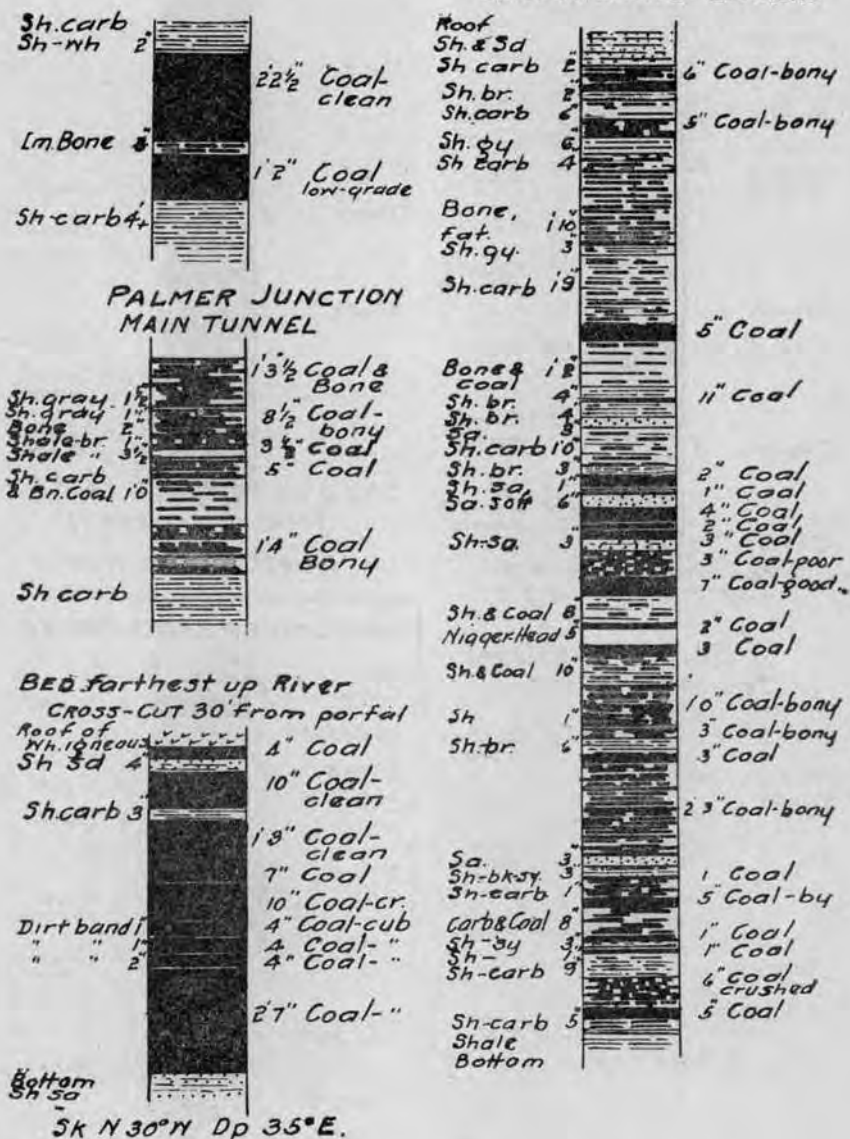 Sh.carb
Sh-wh 2"
2'2½" Coal-
clean
Im.Bone 3"
1'2" Coal
low-grade
Sh-carb 4'+
PALMER JUNCTION
MAIN TUNNEL
1'3½" Coal &
Bone
Sh.gray 1½"
Sh.gray 1"
Bone 2"
Shale-br. 1"
Shale " 3½"
8½" Coal-
bony
Coal
5" Coal
Sh.carb
& Bn.Coal 1'0"
1'4" Coal
Bony
Sh carb
BED farthest up River
CROSS-CUT 30' from portal
Roof of
Wh.igneous
Sh sd 4"
4" Coal
10" Coal-
clean
Sh.carb 3"
1'3" Coal-
clean
7" Coal
10" Coal-cr.
Dirt band 1"
" " 1"
" " 2"
4" Coal-cub
4 Coal- "
4" Coal- "
2'7" Coal- "
Bottom
Sh sa
Sk N 30° W Dp 35° E.
Roof
Sh.& Sd
Sh carb 2"
6" Coal-bony
Sh.br. 2"
Sh.carb 6"
5" Coal-bony
Sh.gy 6"
Sh carb 4
Bone,
fat. 1'10"
Sh.gy. 3"
Sh.carb 1'9"
5" Coal
Bone &
coal 1'2"
Sh.br. 4"
11" Coal
Sh.br. 4
Sa. 3"
Sh.carb 1'0"
Sh.br. 3"
Sh.sa, 1"
Sa.soft 6"
2" Coal
1" Coal
4" Coal,
2" Coal,
3" Coal
Sh-sa. 3"
3" Coal-poor
7" Coal-good.
Sh.& Coal 8"
NiggerHead 5"
2" Coal
3 Coal
Sh.& Coal 10"
10" Coal-bony
Sh 1"
3" Coal-bony
Sh-br. 6"
3" Coal
2'3" Coal-bony
Sa. 3"
Sh-bk-sy. 3"
Sh-carb 1"
1 Coal
5" Coal-by
Carb&Coal 8"
Sh-sy 3"
Sh- 1"
Sh-carb 9"
1" Coal
1" Coal
6" Coal
crushed
5" Coal
Sh-carb 5"
Shale
Bottom